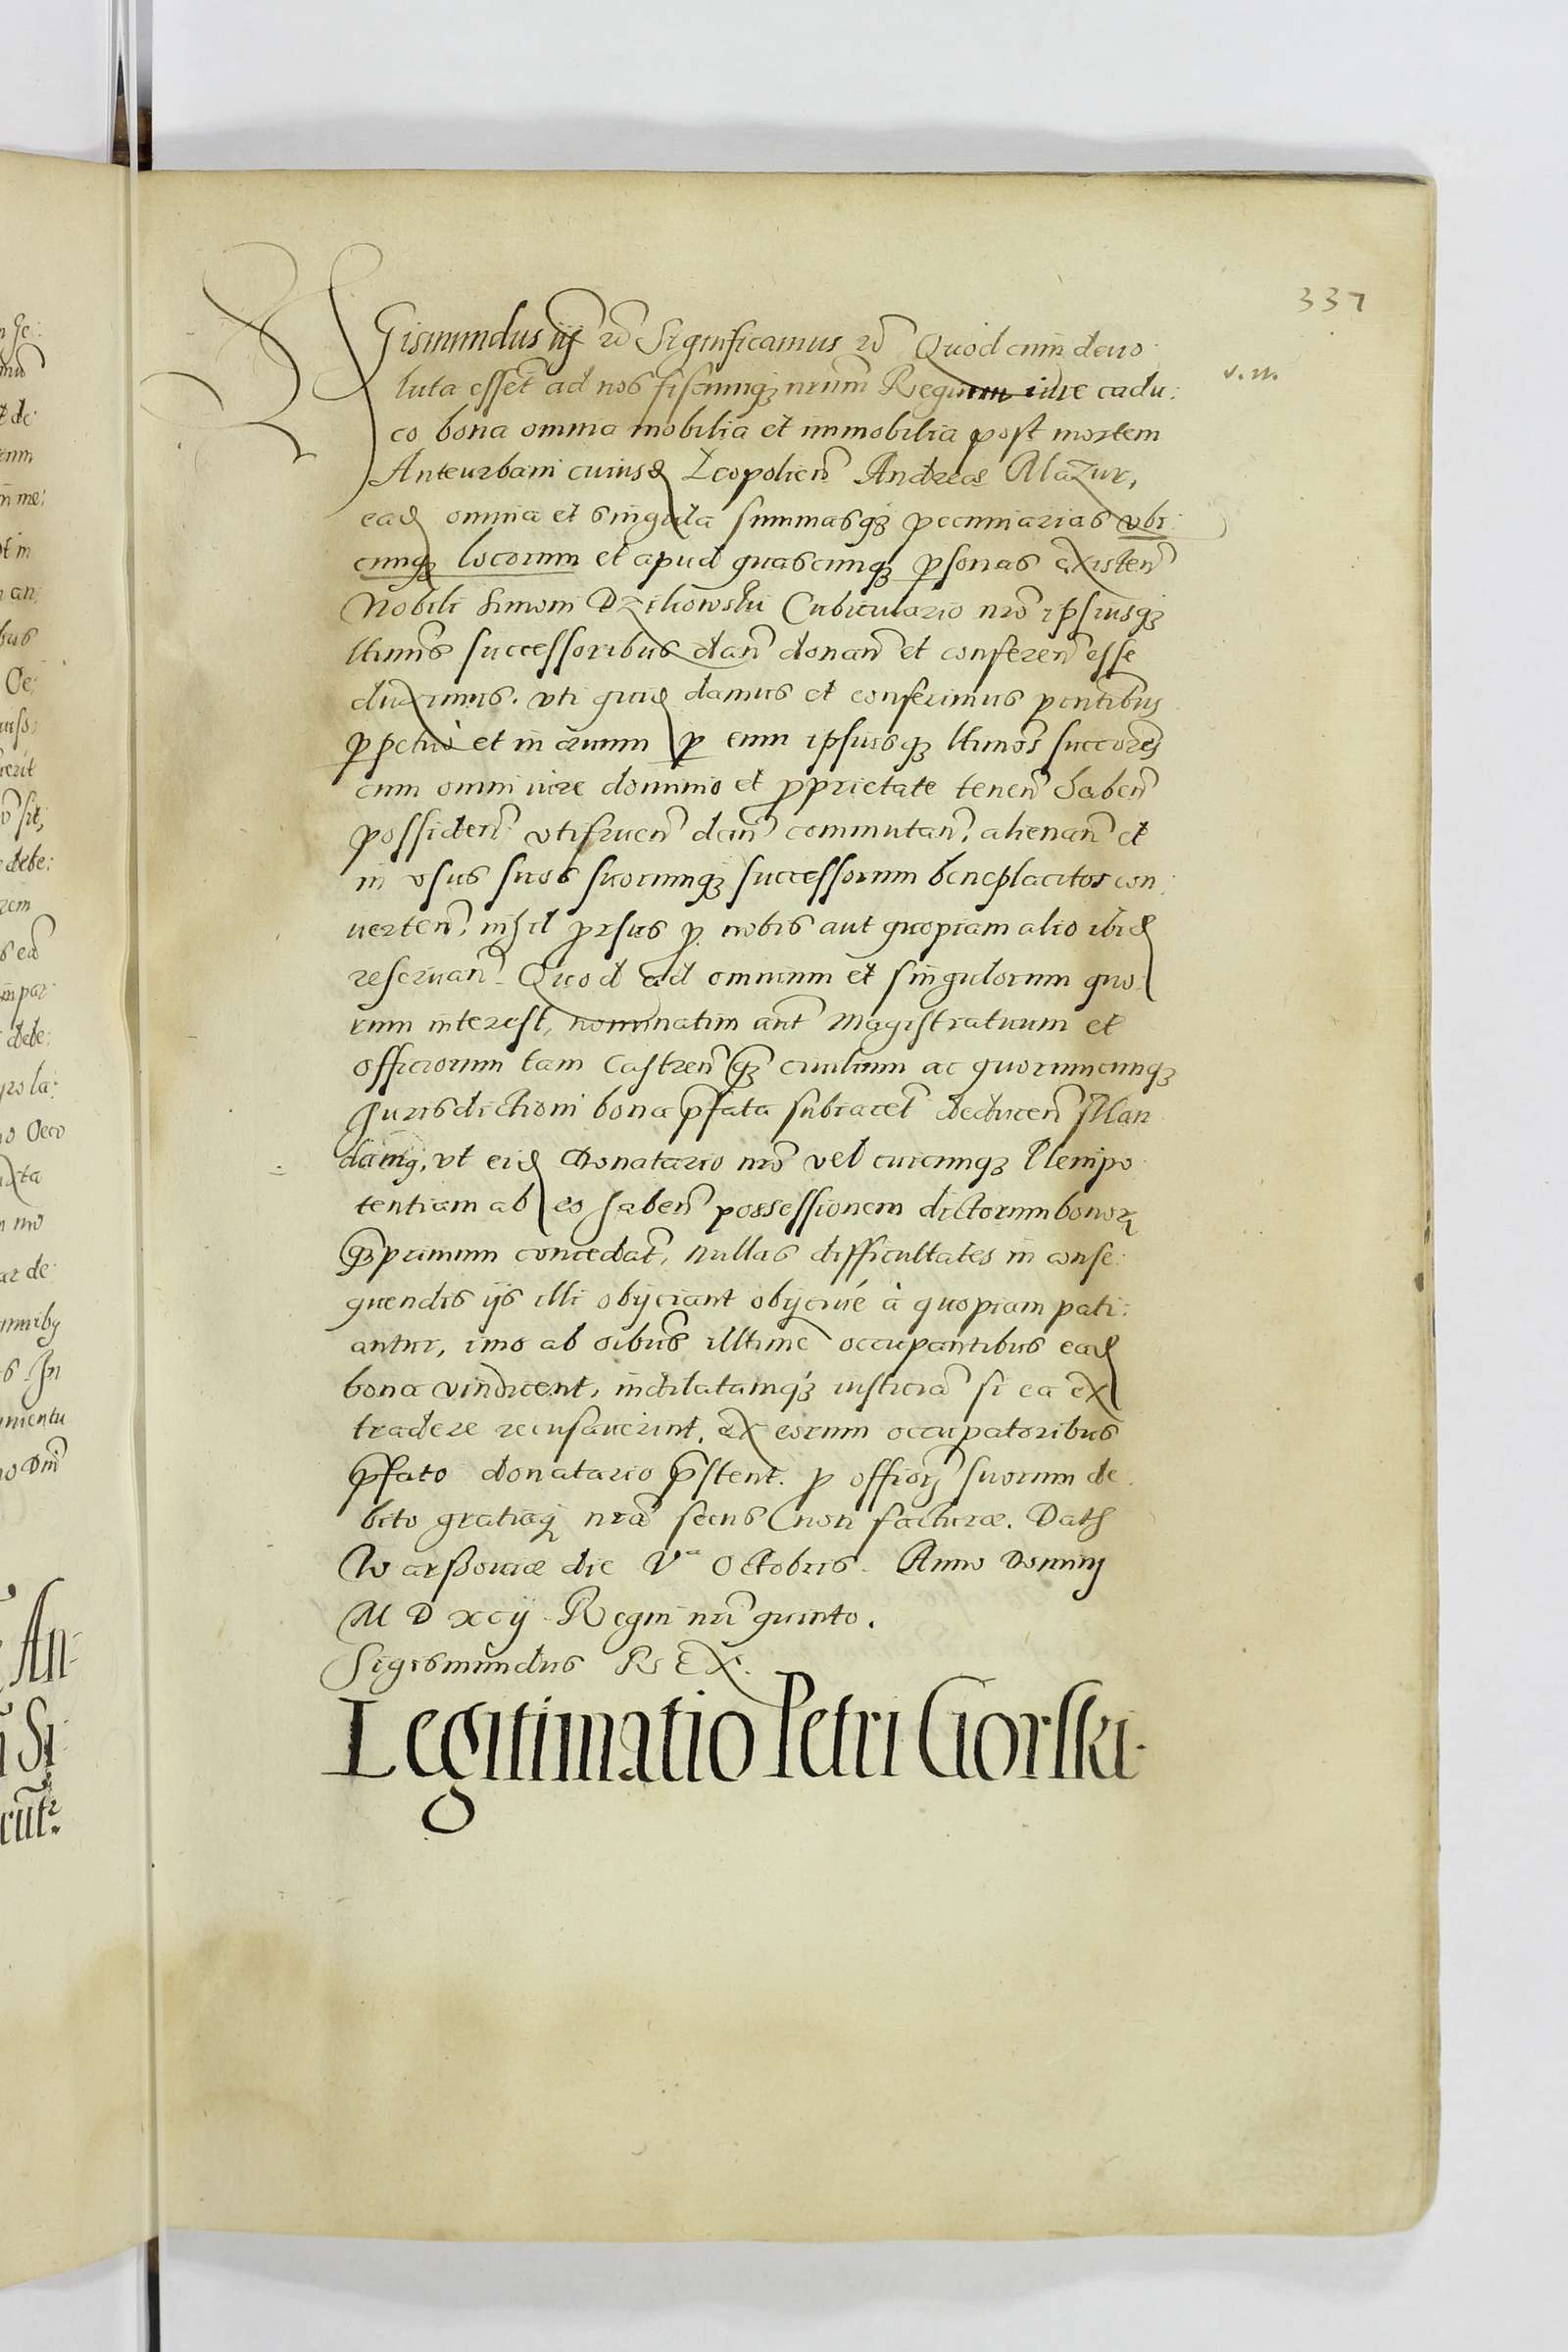 337
SIGismundus iij etc Significamus etc Quod cum devo
v. m.
luta essēt ad nos fiscumq₃ nrum Regium iure cadu:
co bona omnia mobilia et immobilia post mortem
Anteurbani cuiusd Leopolien Andreae Mazur,
ead omnia et singula summasq₃ pecuniarias vbi
cunq₃ locorum et apud quascunq₃ psonas existen
Nobili Simoni Dzikowski Cubiculario nro ipsiusq₃
ltimis successoribus dan donan et conferen esse
duximus. vti quid damus et conferimus pntibus
ppetuò et in aevum p eum ipsiusq₃ ltimos succores
cum omni iure dominio et pprietate tenen haben
possiden vtifruen dan commutan, alienan et
in vsus suos suorumq₃ successorum beneplacitos con:
verten, nihil prsus p nobis aut quopiam alio ibid
reservan. Quod ad omnium et singulorum quo:
rum interest, nominatim aut Magistratuum et
officiorum tam Castren q₃ civilium ac quorumcunq₃
Jurisdictioni bona pfata subiacet deducen Man
damq, vt eid Donatario nro vel cuicunq₃ Plenipo
tentiam ab eo haben possessionem dictorum bonor
q₃primum concedat, nullas difficultates in conse:
quendis ijs illi obijciant obijcivé à quopiam pati:
antur, imo ab oibus illtime occupantibus ead
bona vindicent, indilatamq₃ iusticia si ea ex
tradere recusaverint, ex eorum occupatoribus
pfato donatario pstent. p officior suorum de
bito gratiaq nra secus non facturae. Dat
Warssoviae die Vᵃ Octobris. Anno Dominj
M D xcij Regni nri quinto.
Sigismundus Rex.
Legitimatio Petri Gorski.